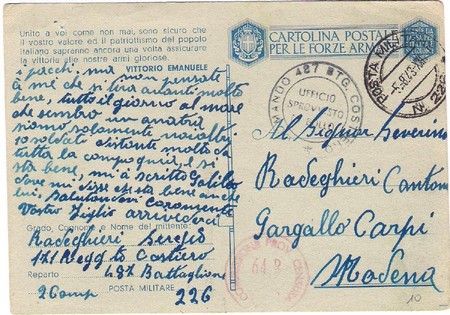 Unito a voi come non mai, sono sicuro che
il vostro valore ed il patriottismo del popolo
italiano sapranno ancora una volta assicurare
la vittoria alle nostre armi gloriose.
VITTORIO EMANUELE
i pacchi, ma non pensate
a me che si sta avanti molto
bene, tutto il giorno al mare
che sembro un anatra
siamo solamente
10 soldati distante molto da
tutta la compagnia, e si
sta bene, mi à scritto Galileo
dove mi disse che sta bene anche
lui, Salutandovi caramente
Vostro figlio arrivederci
Grado, Cognome e Nome del mittente:
Radeghieri Sergio
171 Regg to Costiero
Reparto 48 Battaglione
2 Comp POSTA MILITARE 226
CARTOLINA POSTALE
PER LE FORZE ARMATE
COMANDO 427 BTG. COSTIERO
UFFICIO
SPROVVISTO
DI BOLLO
POSTA MILITARE
N. 226
Al Signor Severino
Radeghieri Cantone
Gargallo Carpi
Modena
COMMISSIONE PROV. CENSURA
64 R
10